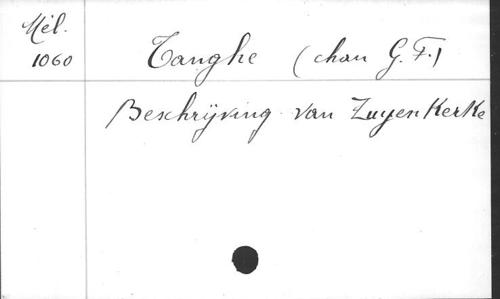 Mél.
1060
Tanghe (chan G. F.)
Beschrijving van Zuyenkerke